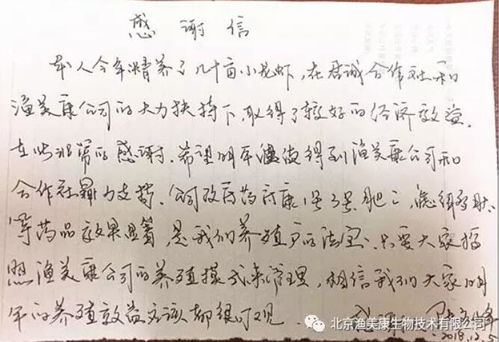 感谢信
本人今年精养了几十亩小龙虾，在君诚合作社和
渔美康公司的大力扶持下，取得了较好的经济效益。
在此非常的感谢。希望明年继续得到渔美康公司和
合作社鼎力支持。公司改底药
等药品效果显著，是我们养殖户的法宝。只要大家按
照渔美康公司的养殖模式来管理，相信我们大家明
年的养殖效益应该都很可观。
2018.12.5
北京渔美康生物技术有限公司